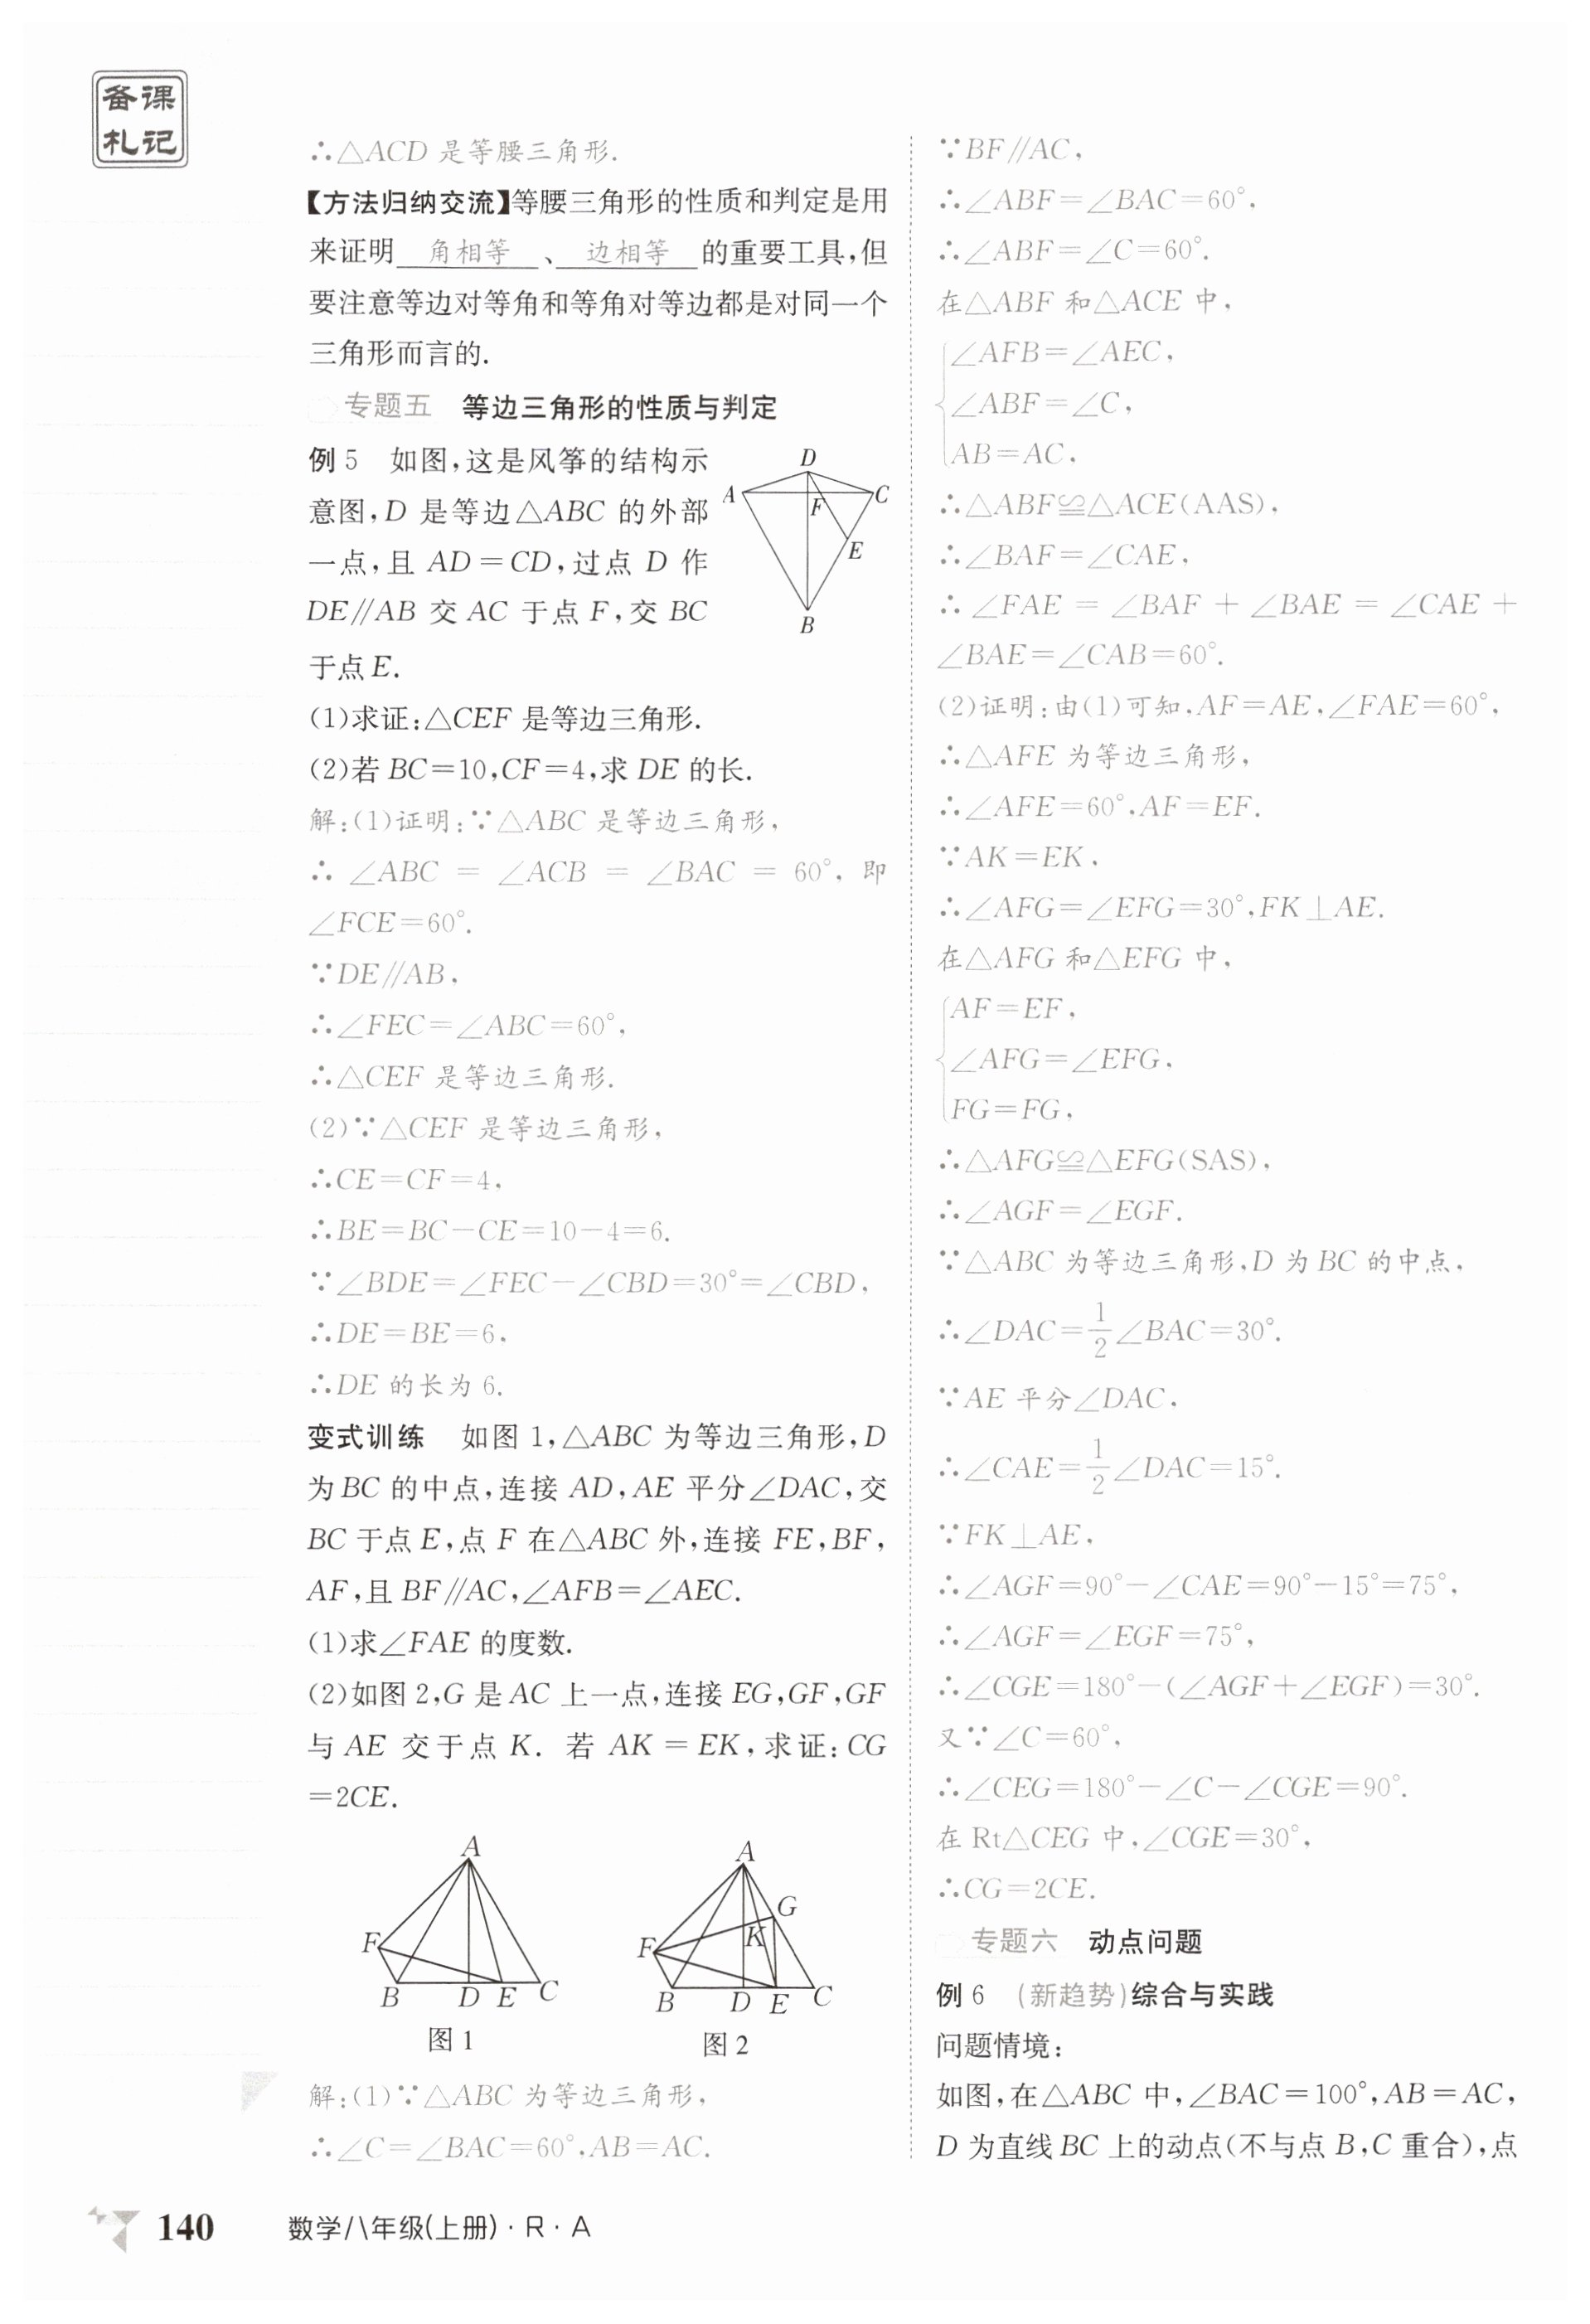 备课
札记
∴△ACD 是等腰三角形.
【方法归纳交流】等腰三角形的性质和判定是用
来证明 角相等 、 边相等 的重要工具,但
要注意等边对等角和等角对等边都是对同一个
三角形而言的.
专题五 等边三角形的性质与判定
例 5 如图,这是风筝的结构示
意图,D 是等边△ABC 的外部
一点,且 AD=CD,过点 D 作
DE∥AB 交 AC 于点 F,交 BC
于点 E.
D
A
C
F
E
B
(1)求证:△CEF 是等边三角形.
(2)若 BC=10,CF=4,求 DE 的长.
解:(1)证明:∵△ABC 是等边三角形,
∴∠ABC=∠ACB=∠BAC=60°,即
∠FCE=60°.
∵DE∥AB,
∴∠FEC=∠ABC=60°,
∴△CEF 是等边三角形.
(2)∵△CEF 是等边三角形,
∴CE=CF=4,
∴BE=BC-CE=10-4=6.
∵∠BDE=∠FEC-∠CBD=30°=∠CBD,
∴DE=BE=6,
∴DE 的长为 6.
变式训练 如图 1,△ABC 为等边三角形,D
为 BC 的中点,连接 AD,AE 平分∠DAC,交
BC 于点 E,点 F 在△ABC 外,连接 FE,BF,
AF,且 BF∥AC,∠AFB=∠AEC.
(1)求∠FAE 的度数.
(2)如图 2,G 是 AC 上一点,连接 EG,GF,GF
与 AE 交于点 K. 若 AK=EK,求证:CG
=2CE.
A
F
B D E C
图 1
A
G
K
F
B D E C
图 2
解:(1)∵△ABC 为等边三角形,
∴∠C=∠BAC=60°,AB=AC.
∵BF∥AC,
∴∠ABF=∠BAC=60°,
∴∠ABF=∠C=60°.
在△ABF 和△ACE 中,
∠AFB=∠AEC,
∠ABF=∠C,
AB=AC,
∴△ABF≌△ACE(AAS),
∴∠BAF=∠CAE,
∴∠FAE=∠BAF+∠BAE=∠CAE+
∠BAE=∠CAB=60°.
(2)证明:由(1)可知,AF=AE,∠FAE=60°,
∴△AFE 为等边三角形,
∴∠AFE=60°,AF=EF.
∵AK=EK,
∴∠AFG=∠EFG=30°,FK⊥AE.
在△AFG 和△EFG 中,
AF=EF,
∠AFG=∠EFG,
FG=FG,
∴△AFG≌△EFG(SAS),
∴∠AGF=∠EGF.
∵△ABC 为等边三角形,D 为 BC 的中点,
∴∠DAC=1/2∠BAC=30°.
∵AE 平分∠DAC,
∴∠CAE=1/2∠DAC=15°.
∵FK⊥AE,
∴∠AGF=90°-∠CAE=90°-15°=75°,
∴∠AGF=∠EGF=75°,
∴∠CGE=180°-(∠AGF+∠EGF)=30°.
又∵∠C=60°,
∴∠CEG=180°-∠C-∠CGE=90°.
在 Rt△CEG 中,∠CGE=30°,
∴CG=2CE.
专题六 动点问题
例 6 (新趋势)综合与实践
问题情境:
如图,在△ABC 中,∠BAC=100°,AB=AC,
D 为直线 BC 上的动点(不与点 B,C 重合),点
140 数学/八年级(上册)·R·A